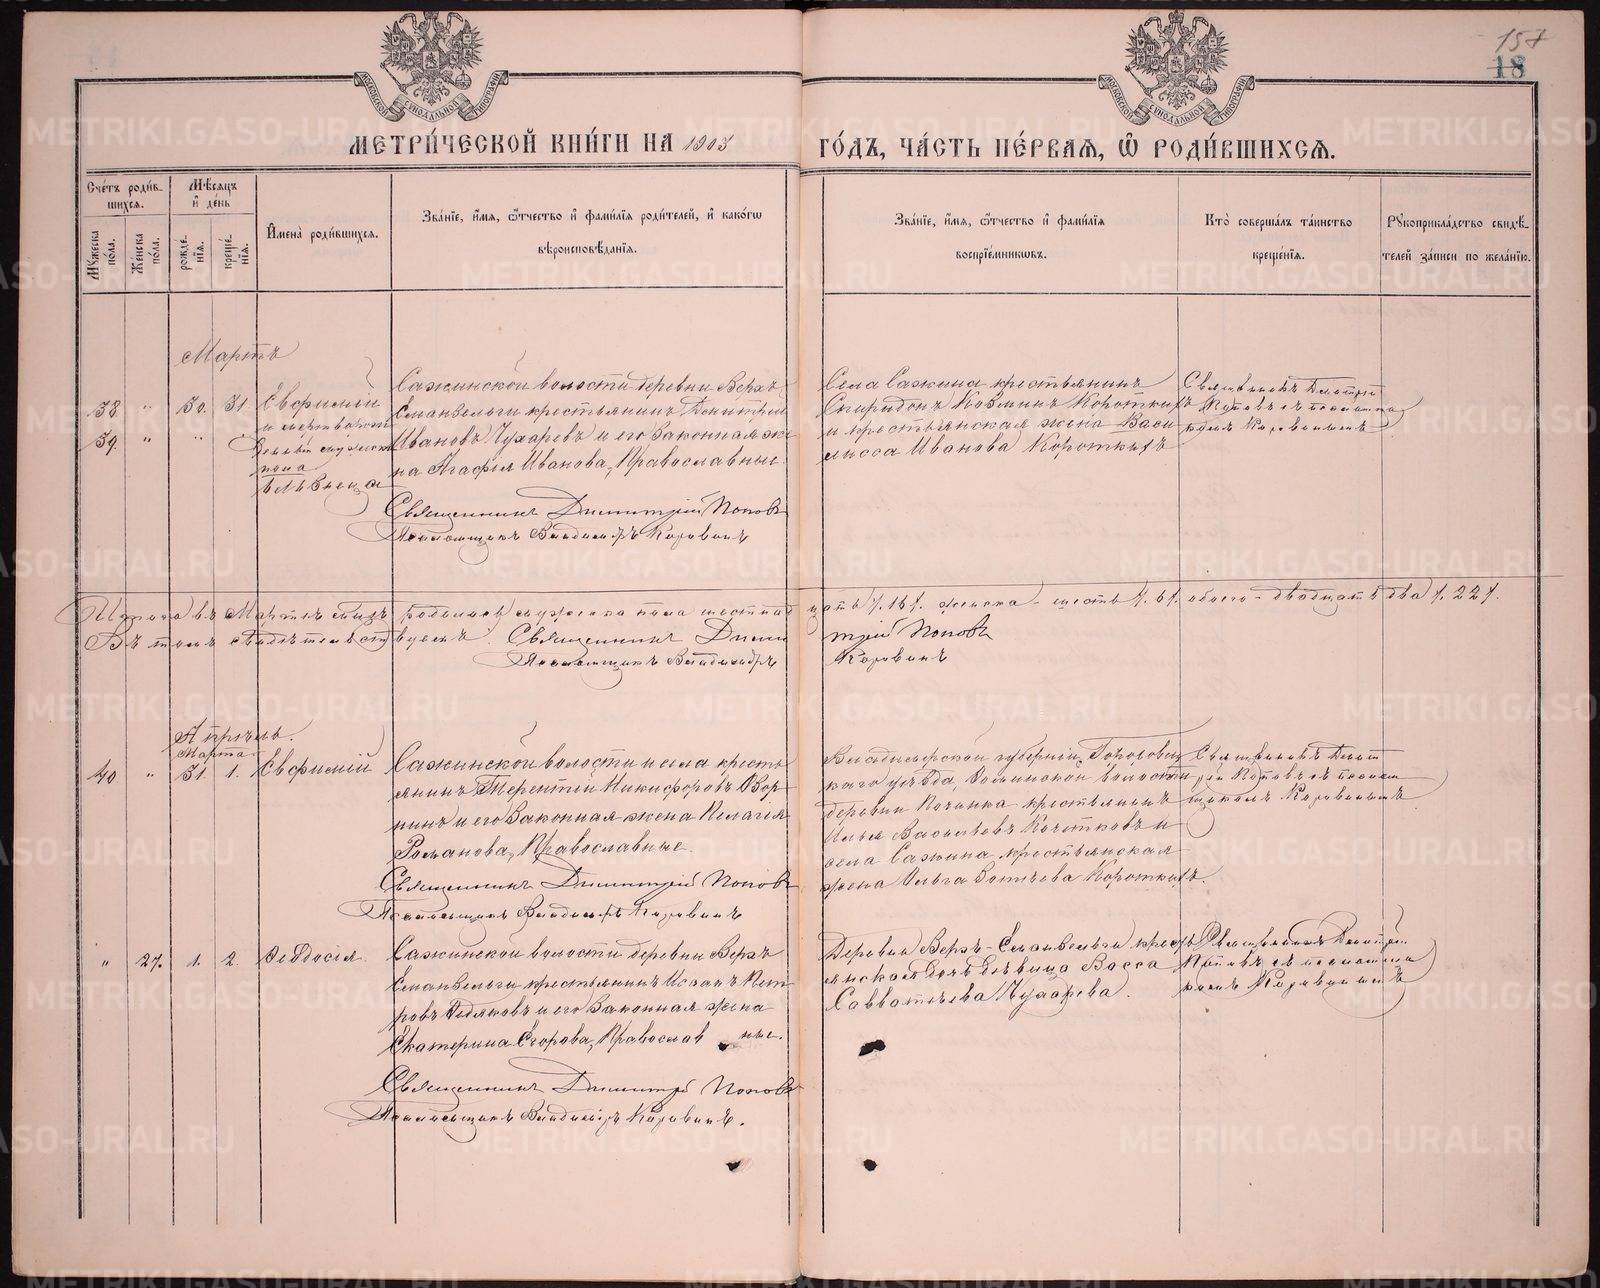 157
18
МОСКОВСКОЙ СѴНОДАЛЬНОЙ ТИПОГРАФІИ
МОСКОВСКОЙ СѴНОДАЛЬНОЙ ТИПОГРАФІИ
МЕТРИ́ЧЕСКОЙ КНИ́ГИ НА 1903
ГО́ДЪ, ЧА́СТЬ ПЕ́РВАЯ, Ѡ҆ РОДИ́ВШИХСЯ.
Сче́тъ роди́в-
шихся.
Мѣ́сяцъ
и҆ день
Мꙋ́жеска по́ла.
Же́нска по́ла.
рожде-
нїя.
креще́-
нїя.
И҆мена̀ роди́вшихся.
Зва́нїе, и҆́мя, ѻ҆́тчество и҆ фами́лїя роди́телей, и҆ како́гѡ
вѣроисповѣ́данїя.
Зва́нїе, и҆́мя, ѻ҆́тчество и҆ фами́лїя
воспрїе́мникѡвъ.
Кто̀ соверша́лъ та́инство
креще́нїя.
Рꙋкоприкла́дство свидѣ́-
телей за́писи по жела́нїю.
Мартъ
38 " 30. 31 Евфимій
39. " "
пола
Сажинской волости деревни Верхъ
Еманзельги крестьянинъ Димитрій
Ивановъ Чухаревъ и его законная же
на Агафія Иванова, Православные.
Священникъ Димитрій Поповъ
Псаломщикъ Владиміръ Коровинъ
Села Сажина крестьянинъ
Спиридонъ Козминъ Коротких
и крестьянская жена Васи
лисса Иванова Короткихъ
Священникъ Дмитрій
Поповъ съ псаломщи
комъ Коровинымъ
Итого въ Мартѣ мѣсяцѣ родилось мужеска пола шестнадцать /.16/. женска - шесть /.6/. обоего - двадцать два /.22/.
Въ томъ свидѣтельствуемъ Священникъ Димитрій Поповъ
Псаломщикъ Владиміръ Коровинъ
Апрѣль.
Марта
40 " 31 1. Евфимій
Сажинской волости и села кресть
янинъ Терентій Никифоровъ
нинъ и его законная жена Пелагея
Романова, Православные.
Священникъ Димитрій Поповъ
Псаломщикъ Владиміръ Коровинъ
Владимірской губерніи, Гороховец
каго уѣзда, волости
деревни Починка крестьянинъ
Илья Васильевъ Кочетковъ и
села Сажина крестьянская
жена Ольга Короткихъ.
Священникъ Димит
рій Поповъ съ псалом
щикомъ Коровинымъ
" 27. 1. 2. Ѳеодосія.
Сажинской волости деревни Верхъ
Еманзельги крестьянинъ Исаакъ Пет
ровъ и его законная жена
Екатерина Егорова, Православ ные.
Священникъ Димитрій Поповъ
Псаломщикъ Владиміръ Коровинъ.
Деревни Верхъ-Еманзельги кресть
янская дочь дѣвица Васса
Савватѣева Чухарева.
Священникъ Димитрій
Поповъ съ псаломщи
комъ Коровинымъ
METRIKI.GASO-URAL.RU